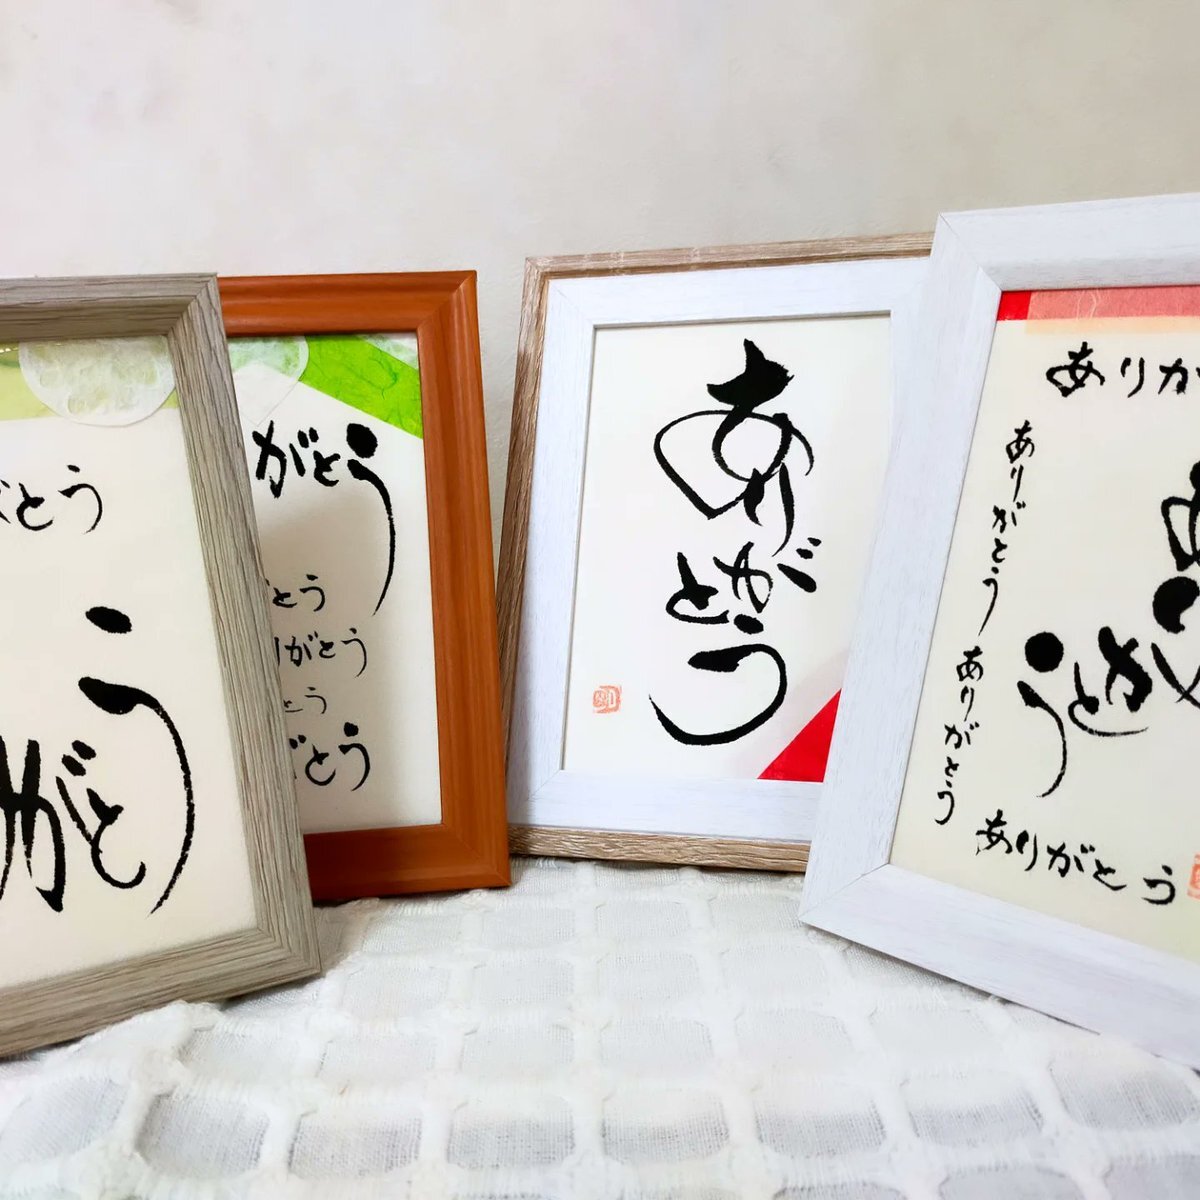 がとう
がとう
がとう
とう
りがとう
とう
がとう
ありがとう
ありが
ありがとう
ありがとう
あ
がとう
ありがとう